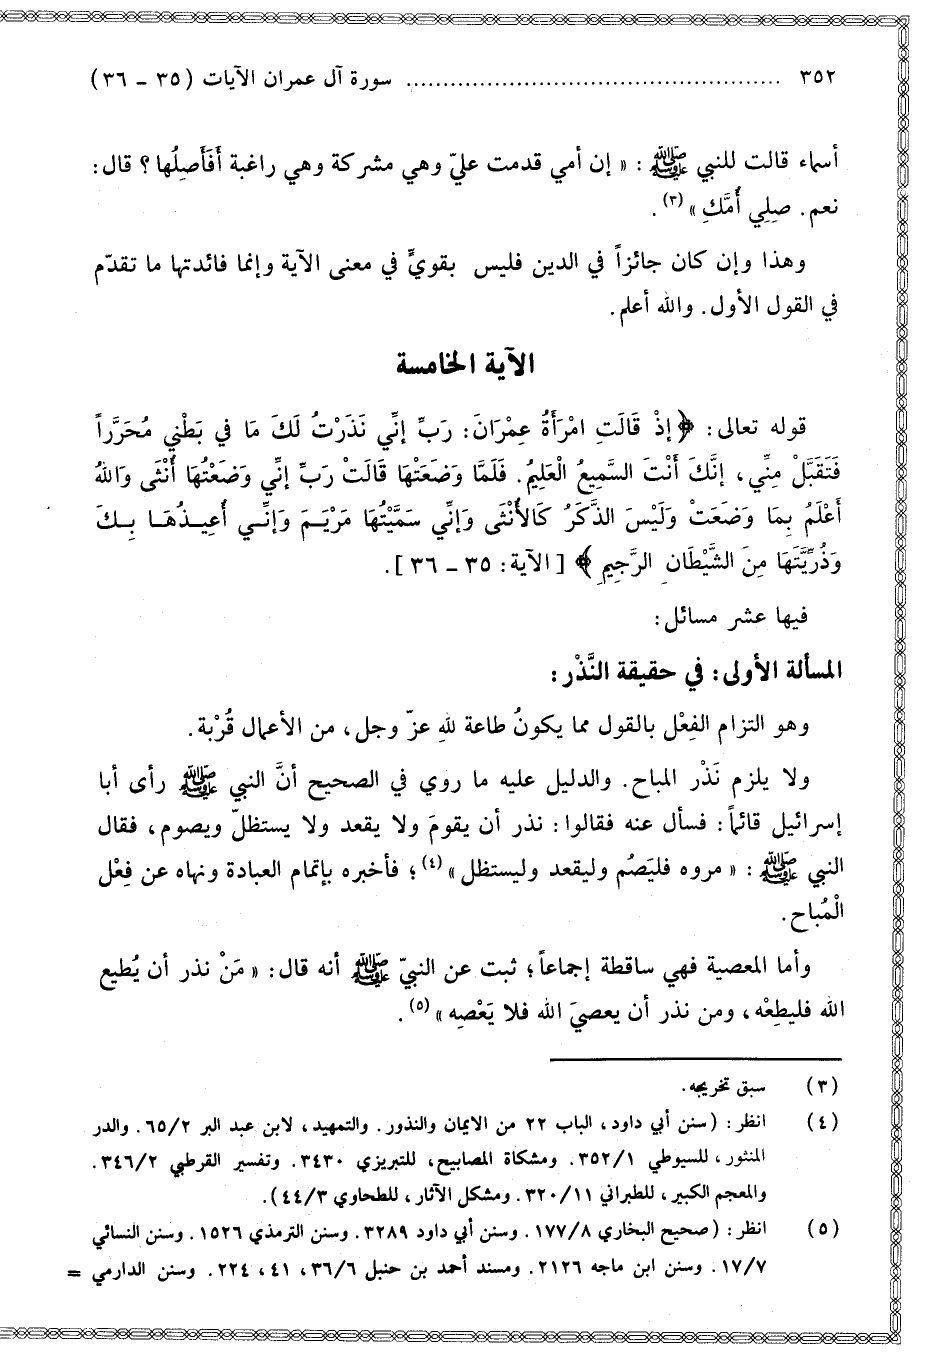 ٣٥٢ ................................................ سورة آل عمران الآيات (٣٥ - ٣٦)
أسماء قالت للنبي ﷺ: «إن أمي قدمت عليّ وهي مشركة وهي راغبة أَفَأَصِلُها؟ قال:
نعم. صِلِي أُمَّكِ»(٣).
وهذا وإن كان جائزاً في الدين فليس بقويٍّ في معنى الآية وإنما فائدتها ما تقدّم
في القول الأول. والله أعلم.
الآية الخامسة
قوله تعالى: ﴿إِذْ قَالَتِ امْرَأَةُ عِمْرَانَ: رَبِّ إنِّي نَذَرْتُ لَكَ مَا في بَطْني مُحَرَّراً
فَتَقَبَّلْ مِنِّي، إنَّكَ أَنْتَ السَّمِيعُ الْعَلِيمُ. فَلَمَّا وَضَعَتْهَا قَالَتْ رَبِّ إنِّي وَضَعْتُهَا أُنْثَى وَاللهُ
أَعْلَمُ بِمَا وَضَعَتْ وَلَيْسَ الذَّكَرُ كَالأُنْثَى وَإنِّي سَمَّيْتُهَا مَرْيَمَ وَإنِّي أُعِيذُهَا بِكَ
وَذُرِّيَّتَهَا مِنَ الشَّيْطَانِ الرَّجِيمِ﴾ [الآية: ٣٥ - ٣٦].
فيها عشر مسائل:
المسألة الأولى: في حقيقة النَّذْر:
وهو التزام الفِعْل بالقول مما يكونُ طاعة للهِ عزّ وجل، من الأعمال قُرْبة.
ولا يلزم نَذْر المباح. والدليل عليه ما روي في الصحيح أنَّ النبي ﷺ رأى أبا
إسرائيل قائماً: فسأل عنه فقالوا: نذر أن يقومَ ولا يقعد ولا يستظلّ ويصوم، فقال
النبي ﷺ: «مروه فليَصُم وليقعد وليستظل»(٤)؛ فأخبره بإتمام العبادة ونهاه عن فِعْل
الْمُباح.
وأما المعصية فهي ساقطة إجماعاً؛ ثبت عن النبيّ ﷺ أنه قال: «مَنْ نذر أن يُطيع
الله فليطِعْه، ومن نذر أن يعصيَ الله فلا يَعْصِه»(٥).
(٣) سبق تخريجه.
(٤) انظر: (سنن أبي داود، الباب ٢٢ من الايمان والنذور. والتمهيد، لابن عبد البر ٦٥/٢. والدر
المنثور، للسيوطي ٣٥٢/١. ومشكاة المصابيح، للتبريزي ٣٤٣٠. وتفسير القرطبي ٣٤٦/٢.
والمعجم الكبير، للطبراني ٣٢٠/١١. ومشكل الآثار، للطحاوي ٤٤/٣).
(٥) انظر: (صحيح البخاري ١٧٧/٨. وسنن أبي داود ٣٢٨٩. وسنن الترمذي ١٥٢٦. وسنن النسائي
١٧/٧. وسنن ابن ماجه ٢١٢٦. ومسند أحمد بن حنبل ٣٦/٦، ٤١، ٢٢٤. وسنن الدارمي =